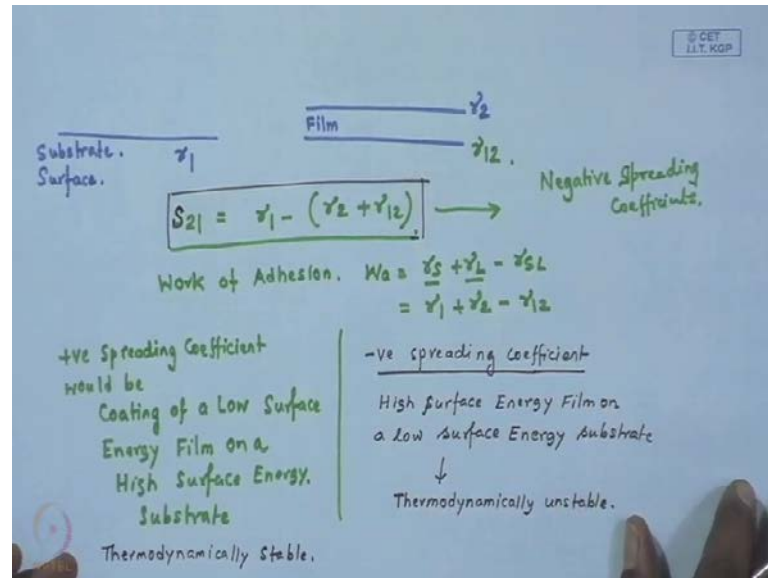 © CET
I.I.T. KGP
Substrate. γ1
Surface.
Film
γ2
γ12.
S21 = γ1 - (γ2 + γ12).
Negative Spreading
Coefficients.
Work of Adhesion. Wa = γS + γL - γSL
= γ1 + γ2 - γ12
+ve Spreading Coefficient
would be
Coating of a Low Surface
Energy Film on a
High Surface Energy.
Substrate
Thermodynamically Stable.
-ve spreading coefficient
High Surface Energy Film on
a low surface Energy substrate
↓
Thermodynamically unstable.